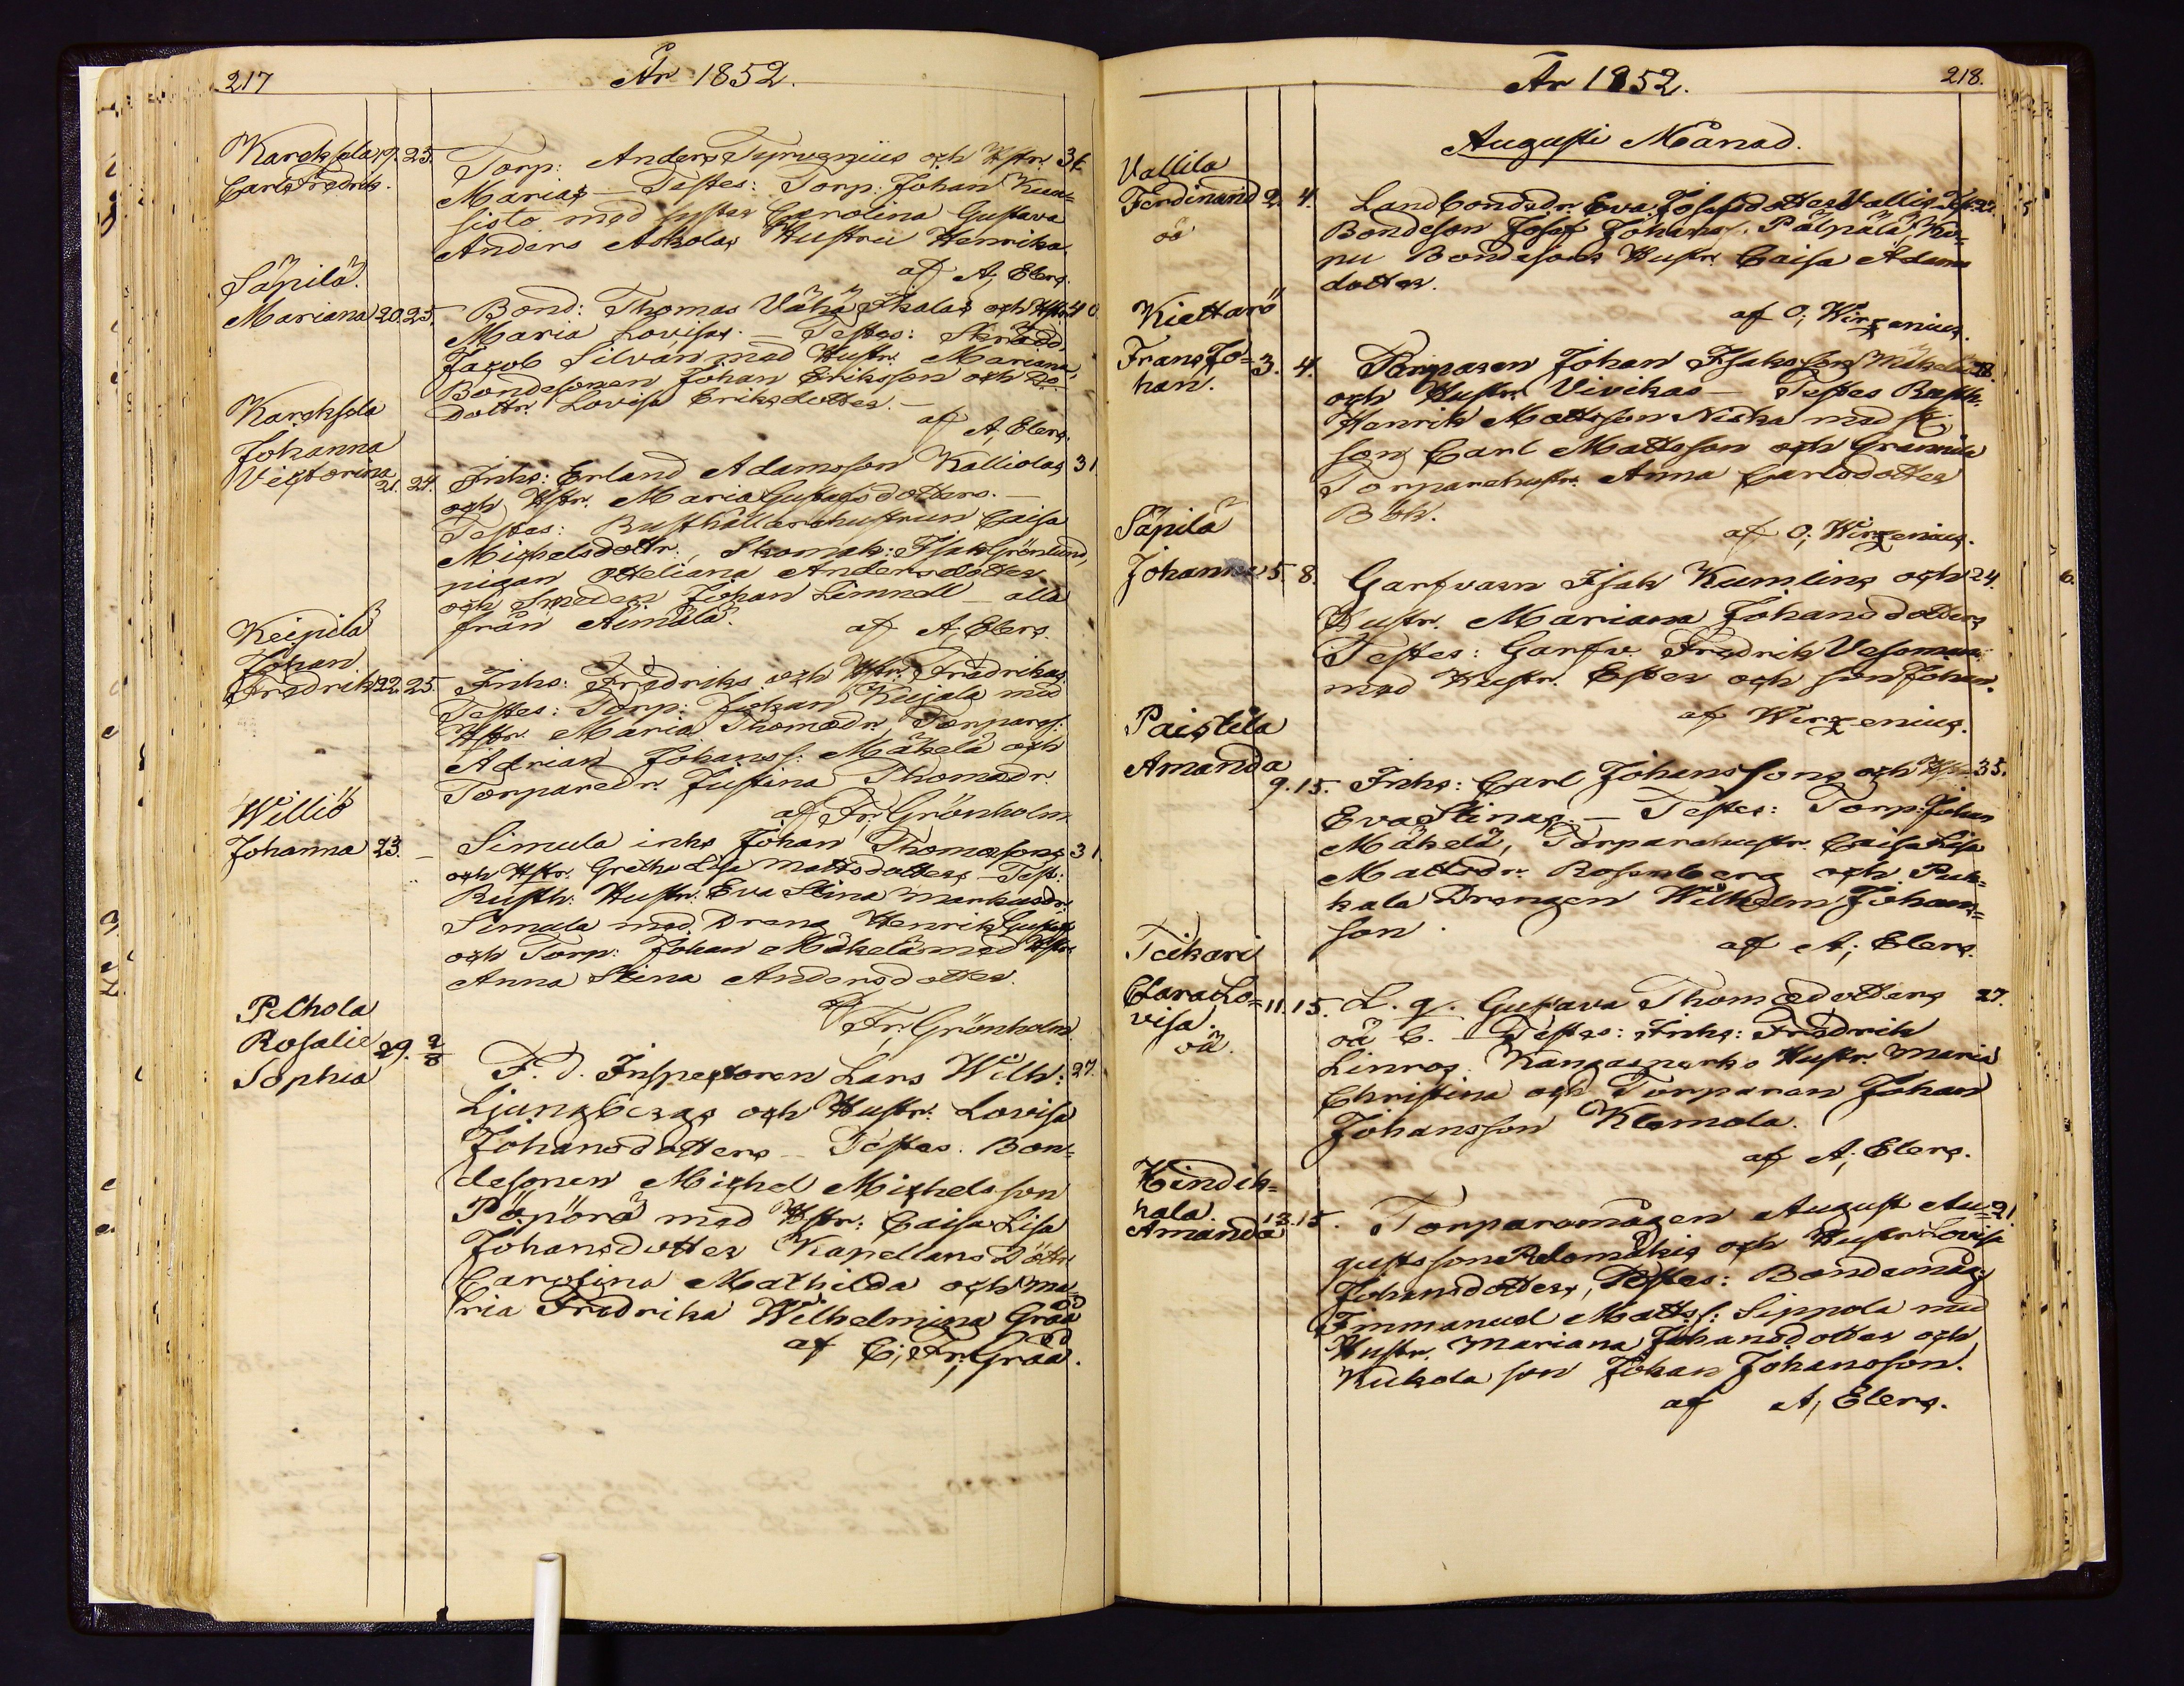 217
År 1852.
Karcksela 19. 25. Torp: Anders Tyrvenius och Hstr. 36
Carl Fredrik. Marias – Testes: Torp: Johan Kuu=
sisto med syster Carolina Gustava
Anders Askolas Hustru Henrika.
af A; Elers.
Säpilä
Mariana 20. 25. Bond: Thomas Vähä Ikalas och Hstr. 40.
Maria Lovisas. – Testes: Skrädd.
Jacob Silvan med Hustr. Mariana,
Bondesonen Johan Eriksson och
dottr. Lovisa Eriksdotter. –
af A, Elers.
Karcksela
Johanna
Victorina 21. 24. Inhs: Erland Adamsson Kalliolas 31
och Hstr. Maria Gustafsdotters. –
Testes: Rusthållarehustrun Caisa
Michelsdottr., Skomak: Isak Grönlund,
pigan Otteliana Andersdotter
och Smeden Johan Limnell – alla
från Äimälä.
af A; Elers.
Keipilä
Johan
Fredrik 22. 25. Inhs: Fredriks och Hstr. Fredrikas
Testes: Torp: Johan Kujala med
Hstr. Maria Thomædr. Torpares.
Adrian Johanss: Mäkelä och
Torparedr. Justina Thomædr.
af Fr; Grönholm.
Williö
Johanna 23. – Simula inhs Johan Thomæsons 31
och Hstr. Greta Lisa Mattsdotters – Test:
Rusth: Hustr. Eva Stina Markusdr.
Simula med Dreng Henrik Gustafs.
och Torp: Johan Mäkelä med Hstr.
Anna Stina Andersdotter.
af Fr; Grönholm
Pelkola
Rosalie 29. 2/8
Sophia F. D. Inspectoren Lars Wilh: 27.
Ljungbergs och Hustr: Lovisa
Johansdotters – Testes: Bon=
desonen Michel Michelsson
Pöpörä med Hstr: Caisa Lisa
Johansdotter Kapellans Döttr.
Carolina Mathilda och Ma=
ria Fredrika Wilhelmina Grää
af C; Fr; Grää.
År 1852.
218.
Augusti Månad.
Vallila
Ferdinand 2. 4. Landbondedr. Eva Josefsdotter Vallis
oä Bondeson Josef Johanss. Pälpälä Ku=
nu Bondesons Hustr. Caisa Adams
dotter.
af O; Wirzenius.
Kiettarö
Frans Jo= 3. 4. Torparen Johan Isakssons Mäkelä 28.
han. och Hustr. Vivikas – Testes Rusth.
Henrik Mattsson Niska med
son Carl Mattsson och Grannila
Torparehustr. Anna Carlsdotter
Bök.
af O; Wirzenius.
Säpilä
Johanna 5. 8. Garfvaren Isak Kumlins och 24. 6.
Hustr. Mariana Johansdotters
Testes: Garfv. Fredrik Vesoman
med Hustr. Ester och son Johan.
af Wirzenius.
Paistila
Amanda
9. 15. Inhs: Carl Johanssons och Hstr. 35.
Eva Stinas. – Testes: Torp: Johan
Mäkelä, Torparehustr. Caisa Lisa
Mattsdr. Rosenberg och Puk=
kala Drengen Wilhelm Johans=
son.
af A; Elers.
Teikari
Clara Lo= 11. 15. L. q. Gustava Thomædotters 27.
visa. oä b. Testes: Inhs: Fredrik
oä. Linros Kangasperks Hustr. Maria
Christina och Torparen Johan
Johansson Klemola.
af A; Elers.
Hindik=
kala. 12. 15. Torparemågen August Au= 21
Amanda gustssons Relomäkis och Hustr. Lovisa
Johansdotters, Testes: Bondemåg:
Immanuel Mattss: Sippola med
Hustr. Mariana Johansdotter och
Kukola son Johan Johansson.
af A, Elers.